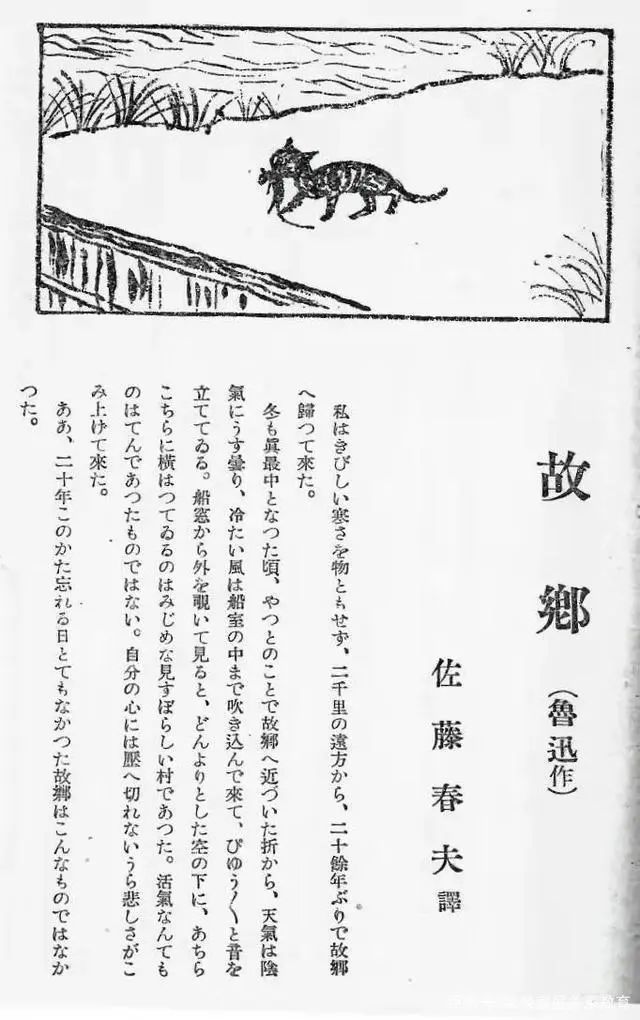 故鄉（魯迅作）
佐藤春夫譯
私はきびしい寒さを物ともせず、二千里の遠方から、二十餘年ぶりで故鄉
へ歸つて來た。
冬も眞最中となつた頃、やつとのことで故鄉へ近づいた折から、天氣は陰
氣にうす曇り、冷たい風は船室の中まで吹き込んで來て、ぴゆう〳〵と音を
立ててゐる。船窓から外を覗いて見ると、どんよりとした空の下に、あちら
こちらに橫はつてゐるのはみじめな見すぼらしい村であつた。活氣なんても
のはてんであつたものではない。自分の心には壓へ切れないうら悲しさがこ
み上げて來た。
ああ、二十年このかた忘れる日とてもなかつた故鄉はこんなものではなか
つた。